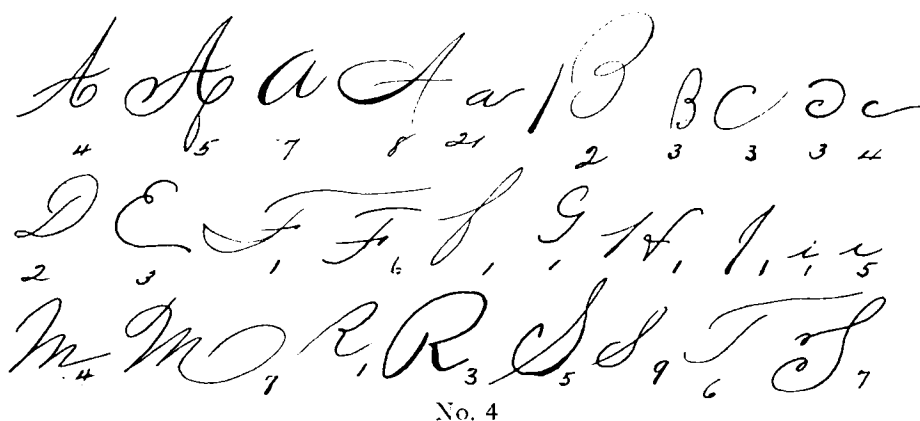 A A a A a B B C C c
4 5 7 8 21 2 3 3 3 4
D E F F f G H I i i
2 3 1 6 1 1 1 1 1 5
M M R R S S T S
4 7 1 3 5 9 6 7
No. 4